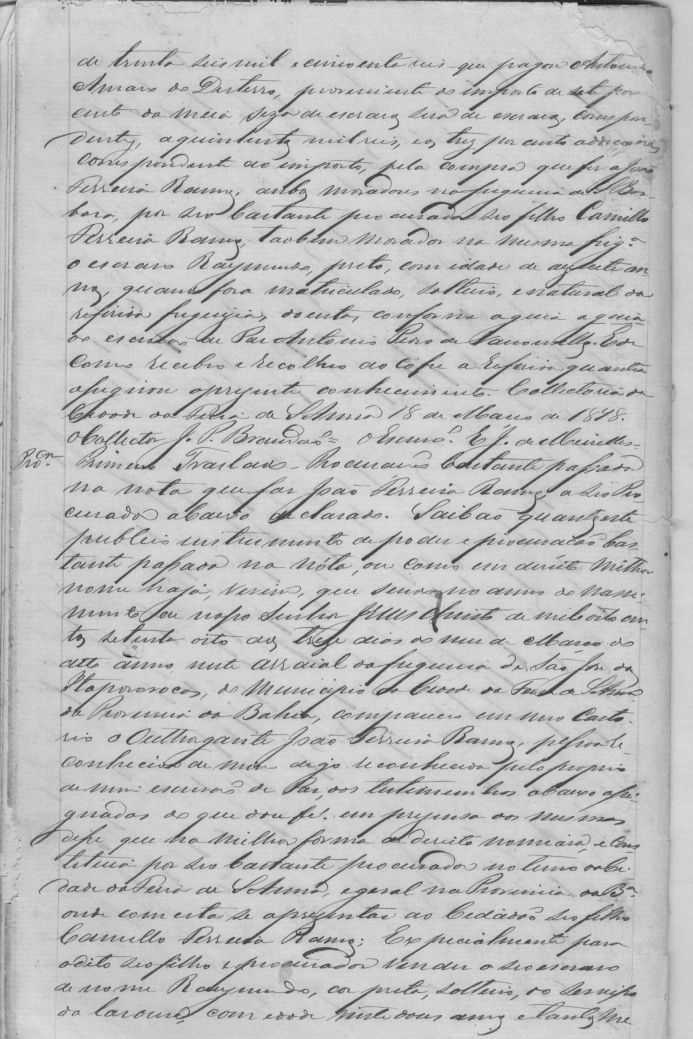 de trinta seis mil e cincoenta reis que pagou Antonio
Amaro do Desterro, proveniente do imposto de sete por
cento da meia siza de escravos
a quinhentos mil reis, e os trez por cento addicionaes
correspondente ao imposto, pela compra que fez a João
Ferreira Ramos, ambos moradores na freguesia de S. Bar
bara, por seo bastante procurador seo filho Camillo
Ferreira Ramos, tambem morador na mesma freg.ª
o escravo Raymundo, preto, com idade de desesete an
nos, quando fora matriculado, solteiro, e natural da
referida freguezia, doente, conforme a guia
do escrivão de Paz Antonio Pedro de Vasconcellos. E de
como recebeo e recolheo ao cofre a referida quantia
assignou o prezente conhecimento. Collectoria da
Cidade da Feira de S. Anna 18 de Março de 1878.
O Collector J. P. Brandão = O Escriv.ᵐ E. J. de Meirelles.
Pro.ᶜᵐ Primeiro Traslado - Procuração bastante passada
na nota que faz João Ferreira Ramos a seo Pro
curador abaixo declarado. Saibão quantos este
publico instrumento de poder e procuração bas
tante passada na nota, ou como em direito milhor
nome haja, virem, que sendo no anno do Nasci
mento de nosso Senhor Jesus Christo de mil oito cen
tos setenta oito aos treze dias do mez de Março do
dito anno neste arraial da freguesia de São José das
Itapororocas, do Municipio da Cidade da Feira de S. Anna
da Provincia da Bahia, compareceo em meo Carto
rio o Outhorgante João Ferreira Ramos, pessoa re
conhecida de mim digo reconhecida pelo proprio
de mim escrivão de Paz e das testemunhas abaixo assi
gnadas do que dou fé. em prezença das mesmas
disse que na milhor forma de direito nomeava, e cons
tituia por seo bastante procurador no termo da Ci
dade da Feira de S. Anna, e geral na Provincia da B.ª
onde com esta se aprezentar ao Cidadão seo filho
Camillo Ferreira Ramos; Expecialmente para
o dito seo filho e procurador vender o seo escravo
de nome Raymundo, cor preta, solteiro, do serviço
da lavoura, com idade vinte dous annos e tantos me